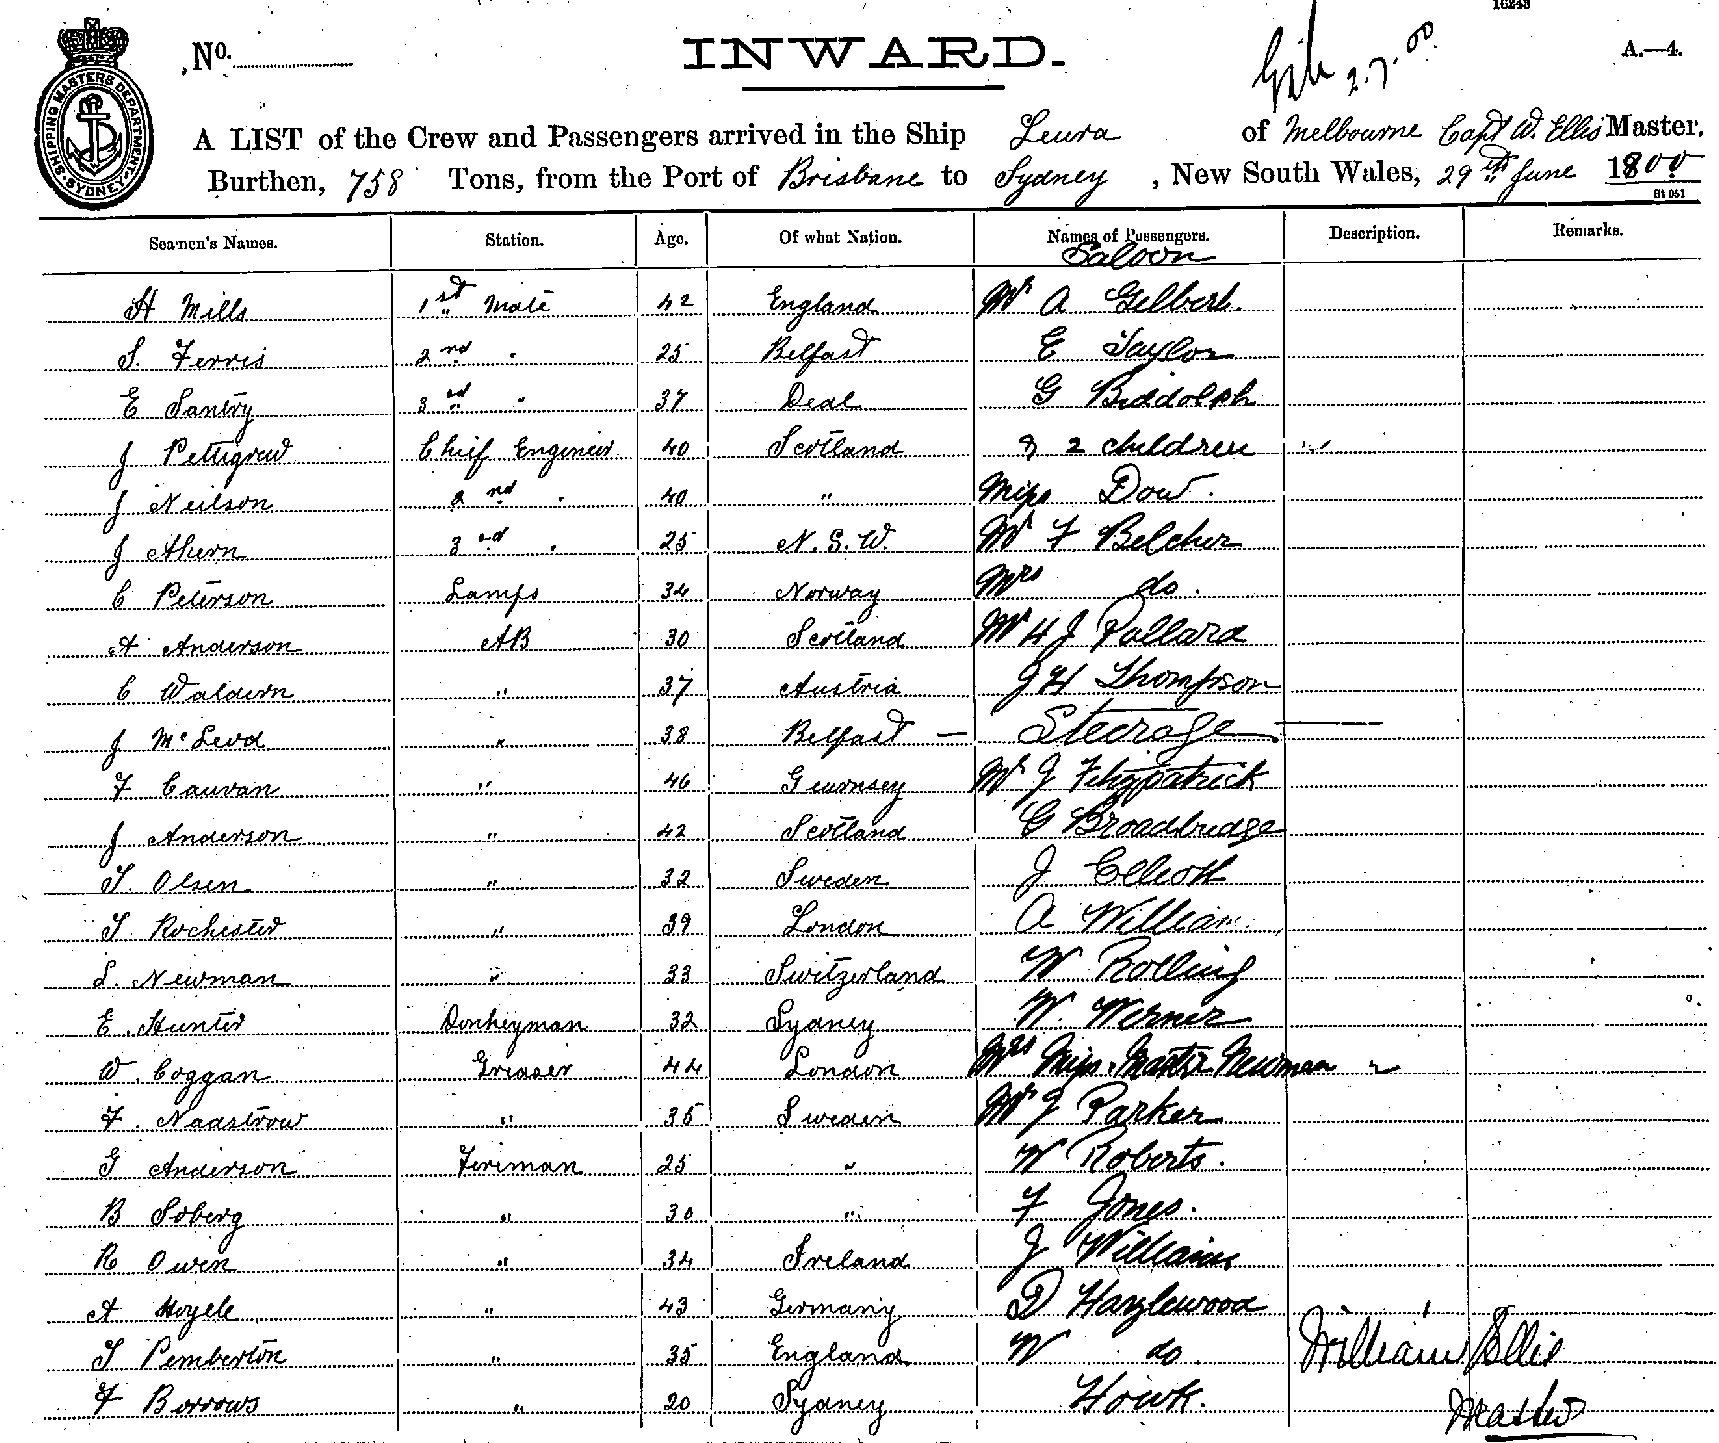 16243
No. INWARD. 2.7.00 A.—4.
SHIPPING MASTERS DEPARTMENT. SYDNEY.
A LIST of the Crew and Passengers arrived in the Ship Leura of Melbourne Capt W. Ellis Master,
Burthen, 758 Tons, from the Port of Brisbane to Sydney, New South Wales, 29th June 1800
Seamen's Names. Station. Age. Of what Nation. Names of Passengers. Description. Remarks.
Saloon
H Mills 1st Mate 42 England Mr A Gilbert.
S. Ferris 2nd " 25 Belfast E Taylor
E Santry 3rd " 37 Deal G Biddolph
J Pettigrew Chief Engineer 40 Scotland & 2 children
J Neilson 2nd " 40 " Miss Dow.
J Ahern 3rd " 25 N.S.W. Mr F Belcher
C Peterson Lamps 34 Norway Mrs do.
A Anderson AB 30 Scotland Mr H J Pollard
C Waldern " 37 Austria J H Thompson
J McLeod " 38 Belfast — Steerage —
F Cauvan " 46 Guernsey Mr J Fitzpatrick
J Anderson " 42 Scotland G Broadbridge
T Olsen " 32 Sweden J Elliott
T Rochester " 39 London A William
L. Newman " 33 Switzerland W Rolling
E. Hunter Donkeyman 32 Sydney W. Werner
W. Coggan Greaser 44 London Mrs Miss. Master Newman
F. Naastrow " 35 Sweden Mr J Parker
G Anderson Fireman 25 " W Roberts.
B Soberg " 30 " F Jones.
R Owen " 34 Ireland J Williams
A Hoyele " 43 Germany D Hazlewood
T Pemberton " 35 England W do. William Ellis
F Borrows " 20 Sydney Howk. Master